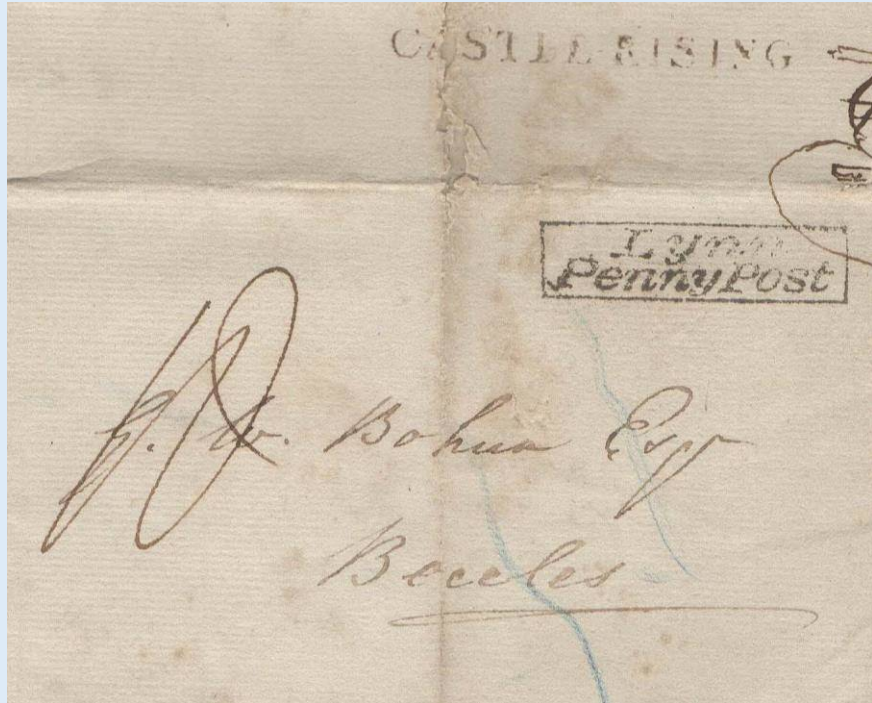 CASTLE RISING
Lynn
Penny Post
W. Bohun Esqr
Beccles